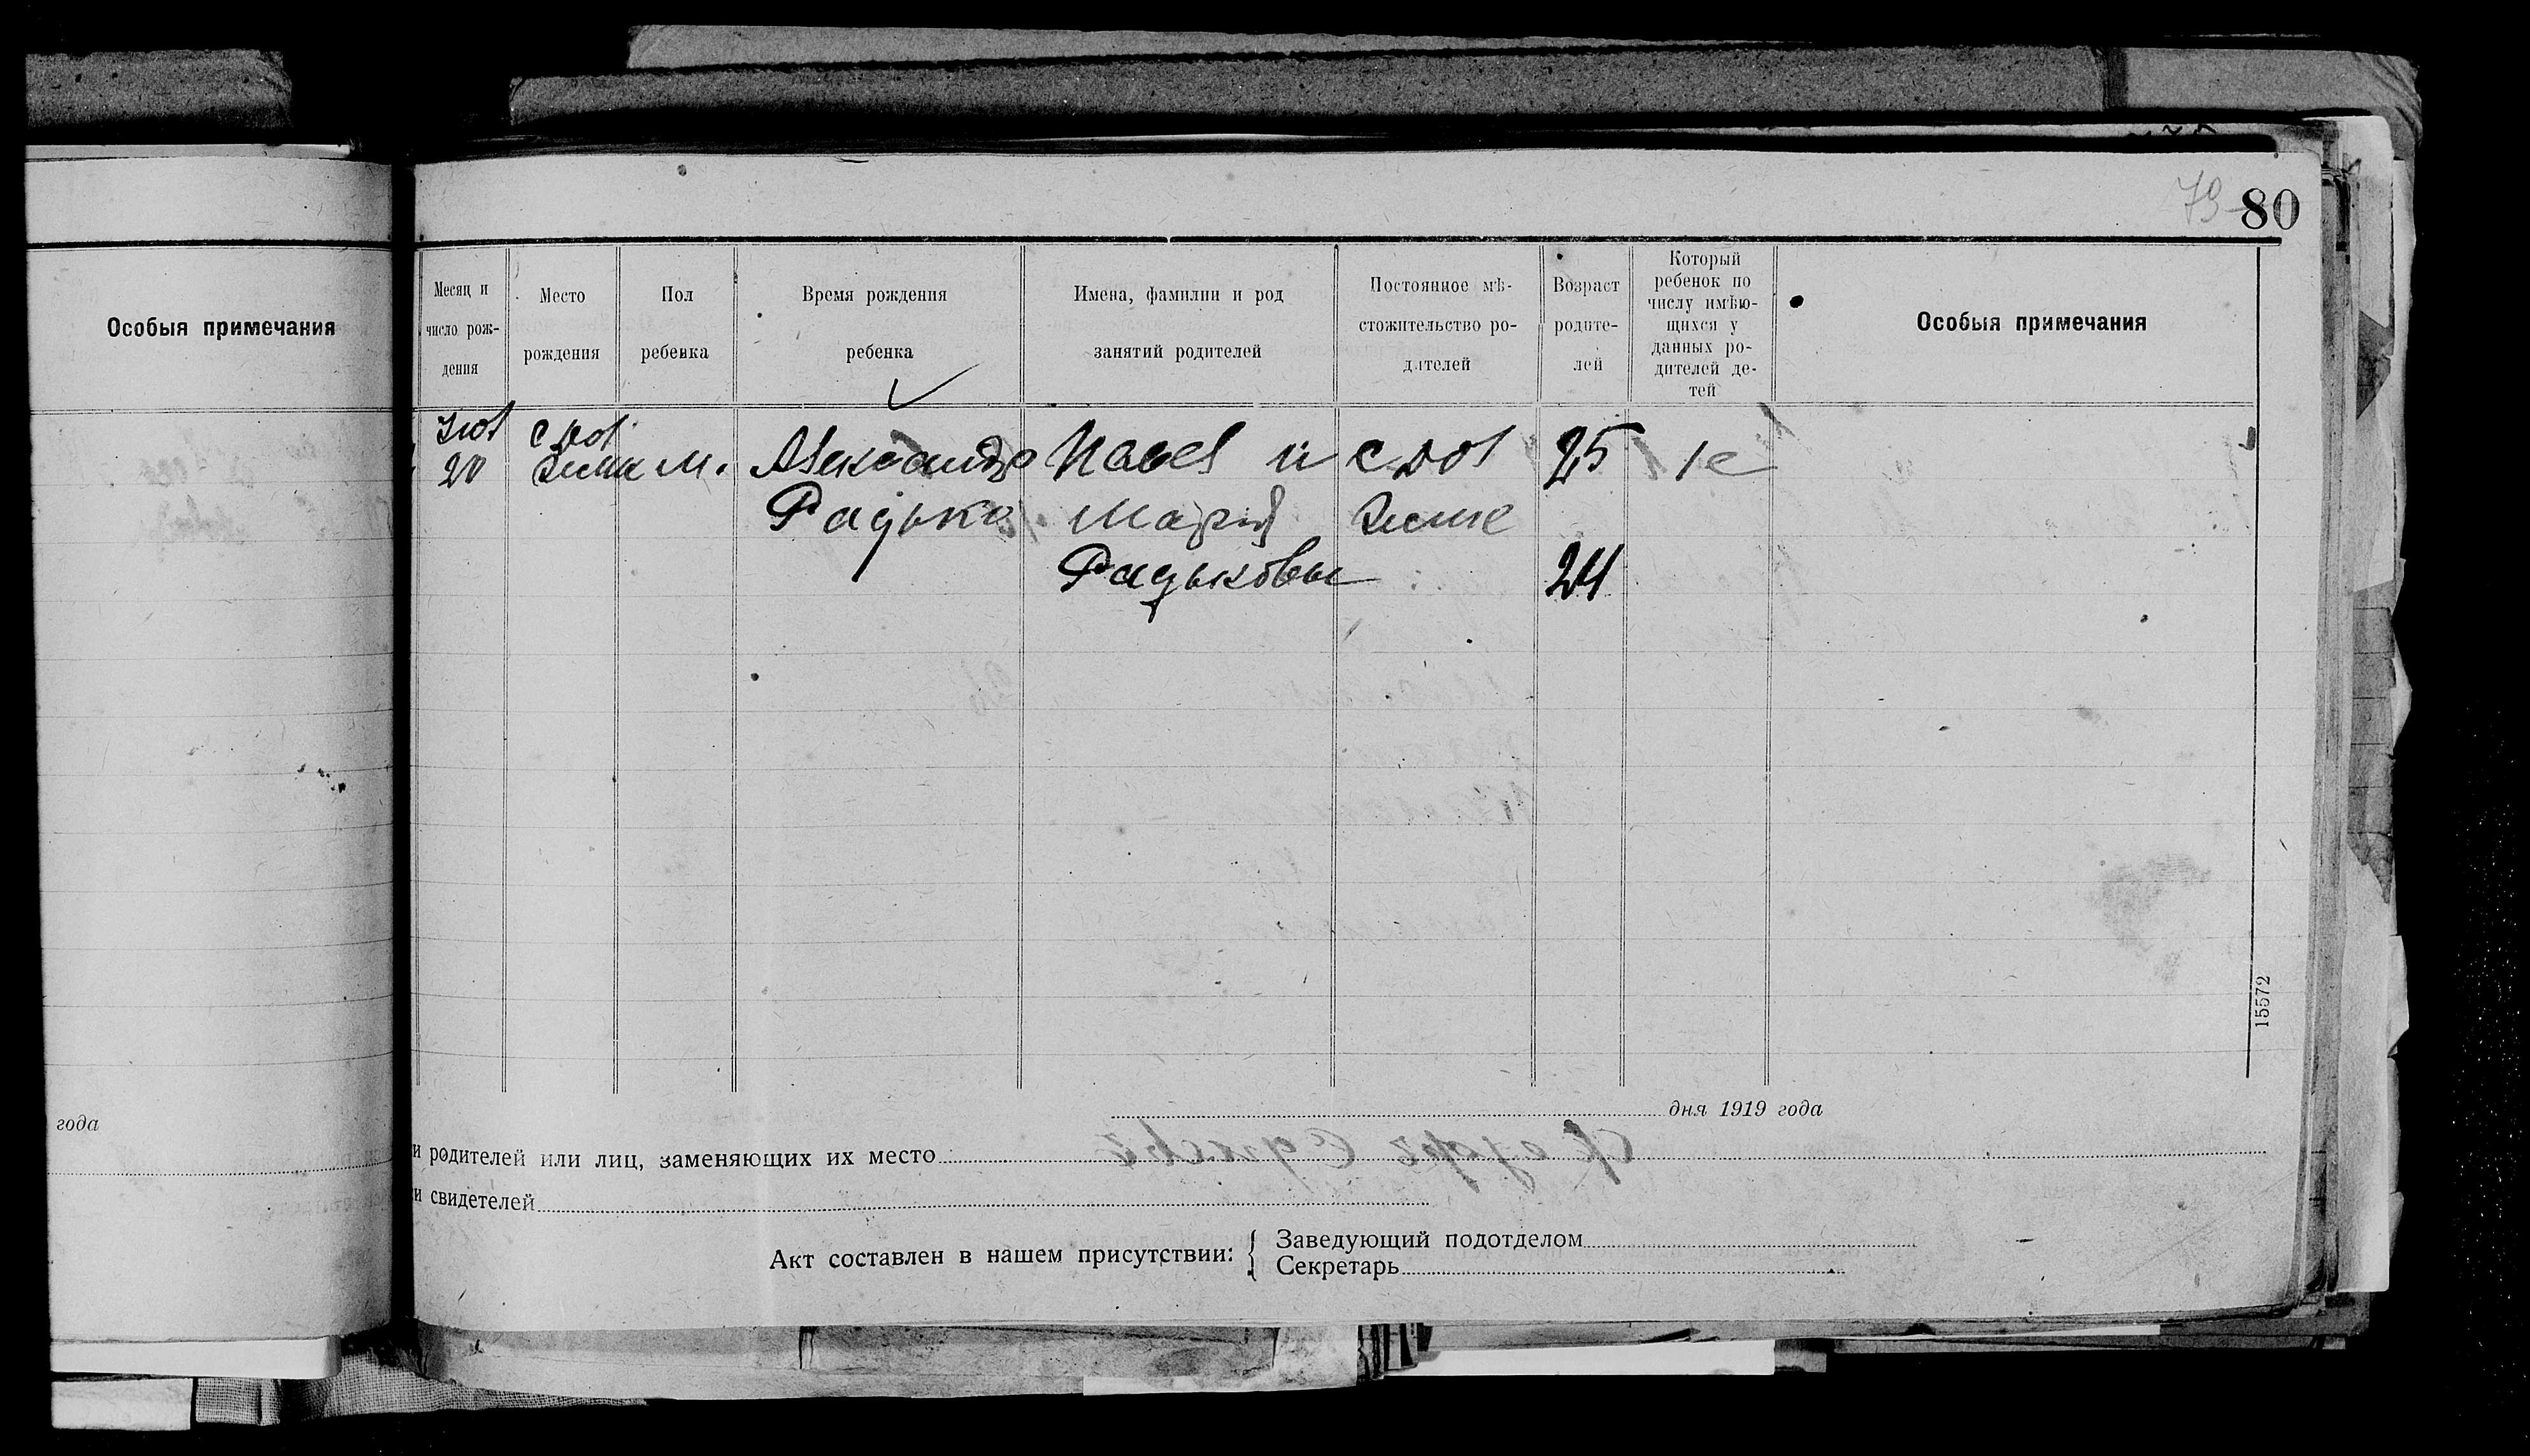 79 80
Особыя примечания
Месяц и
число рож-
дения
Место
рождения
Пол
ребенка
Время рождения
ребенка
Имена, фамилии и род
занятий родителей
Постоянное мѣ-
стожительство ро-
дителей
Возраст
родите-
лей
Который
ребенок по
числу имѣю-
щихся у
данных ро-
дителей де-
тей
Особыя примечания
20
м.
Александр
Радько
Павел и
Мария
Радьковы
25
24
1е
15572
года
дня 1919 года
и родителей или лиц, заменяющих их место
и свидетелей
Акт составлен в нашем присутствии:
Заведующий подотделом
Секретарь